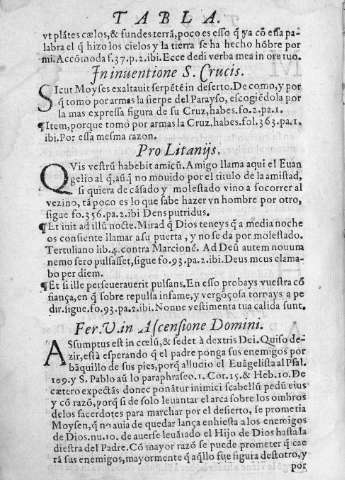 TABLA.
vt plãtes cœlos, & fundes terrã, poco es esso q̃ ya cõ essa pa-
labra el q̃ hizo los cielos y la tierra se ha hecho hõbre por
mi. Accõmoda f.37.p.2.ibi. Ecce dedi verba mea in ore tuo.
In inuentione S. Crucis.
SIcut Moyses exaltauit serpẽtẽ in deserto. De como, y por
q̃ tomo por armas la sierpe del Parayso, escogiẽdola por
la mas expressa figura de su Cruz, habes.fo.2.pa.1.
¶Item, porque tomò por armas la Cruz, habes.fol.363.pa.1.
ibi. Por essa mesma razon.
Pro Litanijs.
QVis vestrũ habebit amicũ. Amigo llama aqui el Euan
gelio al q̃, aũq̃ no mouido por el titulo de la amistad,
si quiera de cãsado y molestado vino a socorrer al
vezino, tã poco es lo que sabe hazer vn hombre por otro,
sigue fo.356.pa.2.ibi Dens putridus.
¶Et iuit ad illũ nocte. Mirad q̃ Dios teneys q̃ a media noche
os consiente llamar a su puerta, y no se da por molestado.
Tertuliano lib.4. contra Marcionẽ. Ad Deũ autem nouum
nemo sero pulsasset, sigue fo.93.pa.2.ibi. Deus meus clama-
bo per diem.
¶Et si ille perseuerauerit pulsans. En esso probays vuestra cõ
fiança, en q̃ sobre repulsa infame, y vergõçosa tornays a pe
dir. sigue fo.93.pa.2.ibi. Nonne vestimenta tua calida sunt.
Fer. V. in Ascensione Domini.
ASsumptus est in cœlũ, & sedet à dextris Dei. Quiso de-
zir, està esperando q̃ el padre ponga sus enemigos por
bãquillo de sus pies, porq̃ alludio el Euãgelista al Psal.
109. y S. Pablo aũ lo paraphraseo. 1. Cor. 15. & Heb. 10. De
cætero expectãs donec ponãtur inimici scabellũ pedũ eius
y cõ razõ, porq̃ si de solo leuantar el arca sobre los ombros
delos sacerdotes para marchar por el desierto, se prometia
Moysen, q̃ no auia de quedar lança enhiesta a los enemigos
de Dios. nu.10. de auerse leuãtado el Hijo de Dios hasta la
diestra del Padre. Cõ mayor razõ se puede prometer q̃ cae
rã sus enemigos, mayormente q̃ aq̃llo fue figura destotro, y
por